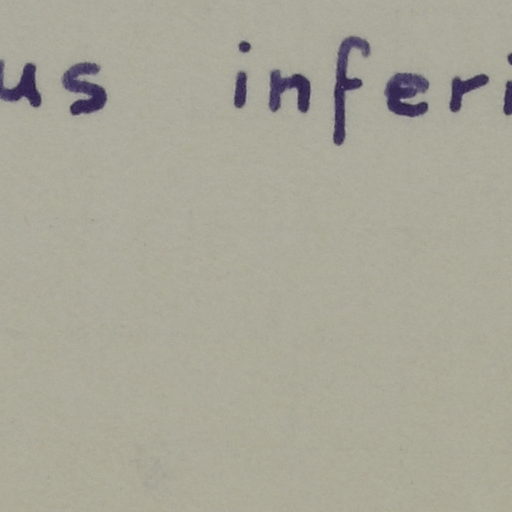 us inferi